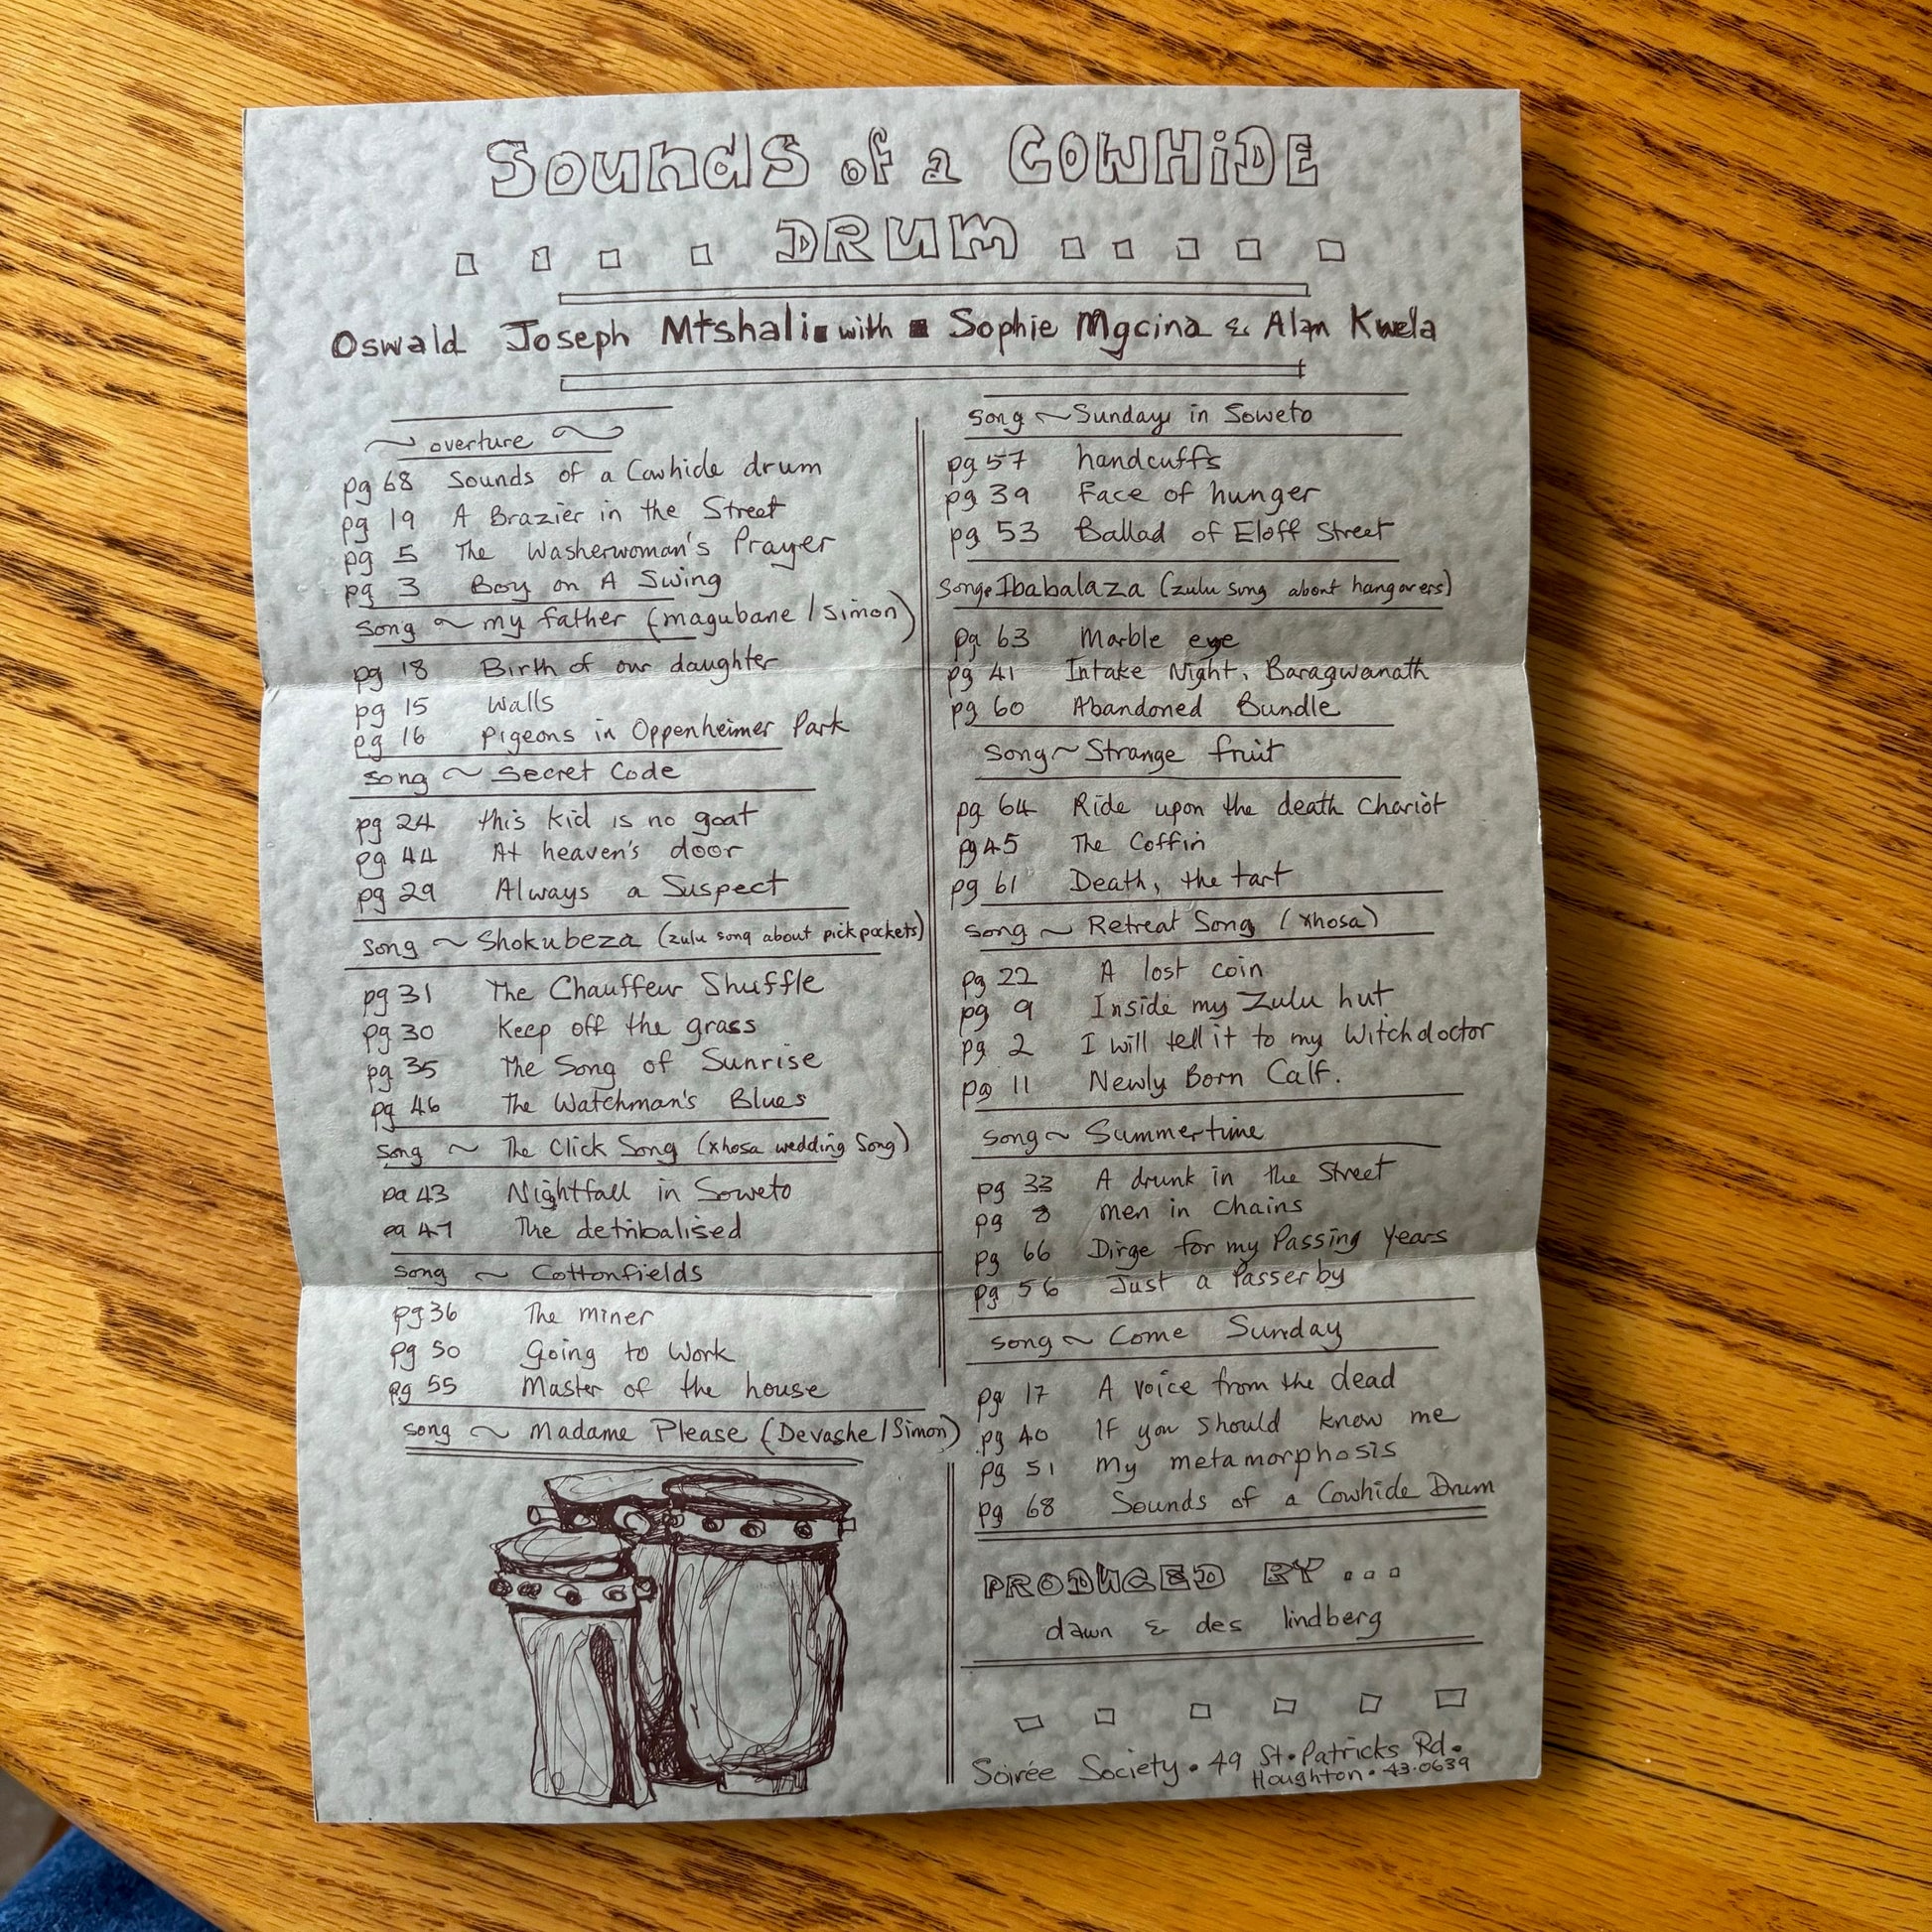 Sounds of a COWHiDE
DRUM
Oswald Joseph Mtshali with Sophie Mgcina & Alan Kwela
overture
pg 68 Sounds of a Cowhide drum
pg 19 A Brazier in the Street
pg 5 The Washerwoman's Prayer
pg 3 Boy on A Swing
song ~ my father (magubane / simon)
pg 18 Birth of our daughter
pg 15 Walls
pg 16 pigeons in Oppenheimer Park
song ~ Secret Code
pg 24 this kid is no goat
pg 44 At heaven's door
pg 29 Always a Suspect
song ~ Shokubeza (zulu song about pickpockets)
pg 31 The Chauffeur Shuffle
pg 30 Keep off the grass
pg 35 The Song of Sunrise
pg 46 The Watchman's Blues
song ~ The Click Song (xhosa wedding Song)
pg 43 Nightfall in Soweto
pg 47 The detribalised
song ~ Cottonfields
pg 36 The miner
pg 50 Going to Work
pg 55 Master of the house
song ~ Madame Please (Devashe / Simon)
song ~ Sundays in Soweto
pg 57 handcuffs
pg 39 Face of hunger
pg 53 Ballad of Eloff Street
song • Ibabalaza (zulu song about hangovers)
pg 63 Marble eye
pg 41 Intake Night, Baragwanath
pg 60 Abandoned Bundle
song ~ Strange fruit
pg 64 Ride upon the death Chariot
pg 45 The Coffin
pg 61 Death, the tart
song ~ Retreat Song (xhosa)
pg 22 A lost coin
pg 9 Inside my Zulu hut
pg 2 I will tell it to my Witchdoctor
pg 11 Newly Born Calf.
song ~ Summertime
pg 33 A drunk in the Street
pg 8 men in chains
pg 66 Dirge for my Passing Years
pg 56 Just a Passerby
song ~ Come Sunday
pg 17 A voice from the dead
pg 40 If you should know me
pg 51 my metamorphosis
pg 68 Sounds of a Cowhide Drum
PRODUCED BY ...
dawn & des lindberg
Soirée Society • 49 St. Patricks Rd.
Houghton • 43.0639